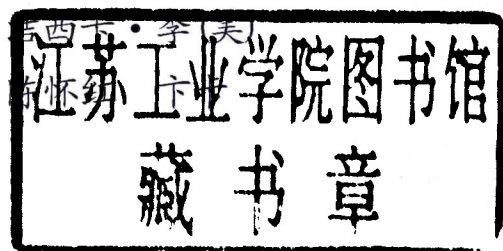 吉西卡·李〔美〕
陈怀
江苏工业学院图书馆
藏书章